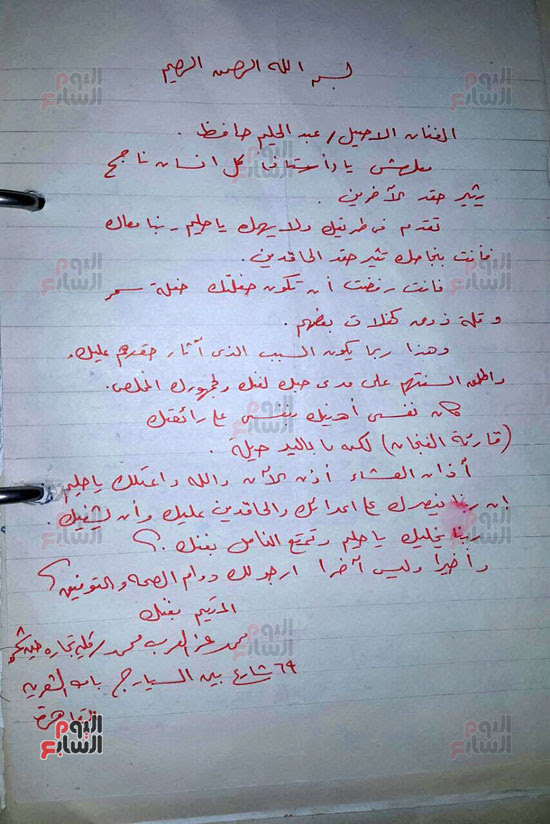 بسم الله الرحمن الرحيم
الفنان الاصيل / عبد الحليم حافظ .
معلهش يا أستاذنا كل انسان ناجح
يثير حقد الآخرين .
تقدم فى طريقك ولا يهمك يا حليم ربنا معاك
فأنت بنجاحك تثير حقد الحاقدين .
فأنت رفضت أن تكون حفلتك حفلة سمر
و قلة ذوق كحفلات بعضهم .
وهذا ربما يكون السبب الذى أثار حقدهم عليك .
واطلق السنتهم على مدى حبك لفنك ولجمهورك المخلص .
كان نفسى أهنيك بنفسى على رائعتك
(قارئة الفنجان) لكن ما باليد حيلة .
أذان العشاء أذن الآن والله يا حليم
ان ربنا ينصرك على اعدائك والحاقدين عليك وأن يشفيك .
ربنا يخليك يا حليم وتمتع الناس بفنك . ؟
وأخيراً وليس آخراً ارجو لك دوام الصحة والتوفيق ؟
المتيم بفنك
محمد عز العرب محمد / كلية تجارة عين شمس
٦٩ شارع بين السيارج باب الشعرية
القاهرة
اليوم السابع